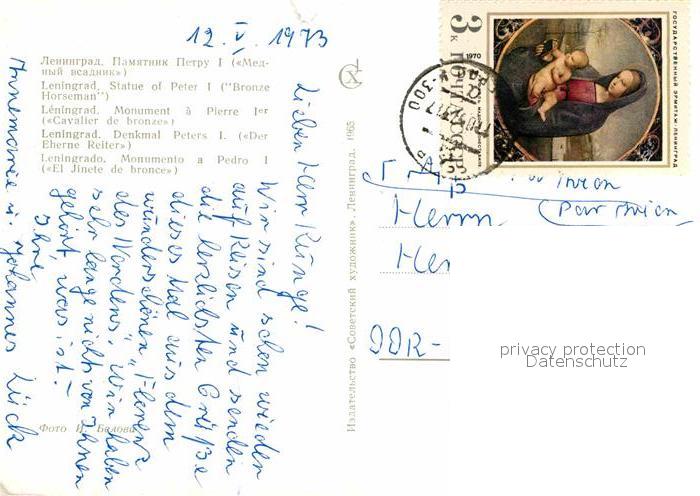 12.V. 1973
Ленинград. Памятник Петру I («Мед-
ный всадник»)
Leningrad. Statue of Peter I ("Bronze
Horseman")
Léningrad. Monument à Pierre Ier
(«Cavalier de bronze»)
Leningrad. Denkmal Peters I. («Der
Eherne Reiter»)
Leningrado. Monumento a Pedro I
(«El Jinete de bronce»)
Lieber Herr Runge!
Wir sind schon wieder
auf Reisen und senden
die herzlichsten Grüße
dieses Mal aus dem
wunderschönen "Florenz
des Nordens". Wir haben
sehr lange nicht von Ihnen
gehört, was ist? -
Ihre
Annemarie u. Johannes Lück
Фото И. Белова
Издательство «Советский художник». Ленинград. 1965
3 к
ПОЧТА СССР
1970
ГОСУДАРСТВЕННЫЙ ЭРМИТАЖ ЛЕНИНГРАД
Par Avion
Herrn
Her
DDR-
privacy protection
Datenschutz